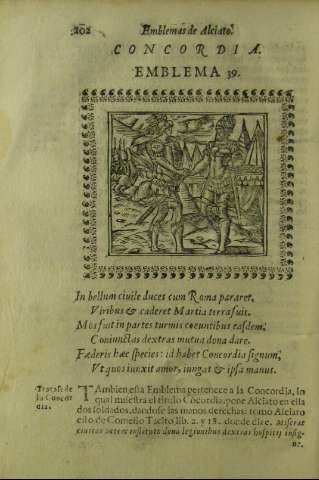 202 Emblemas de Alciato.
CONCORDIA.
EMBLEMA 39.
In bellum ciuile duces cum Roma pararet,
Viribus & caderet Martia terra suis.
Mos fuit in partes turmis coeuntibus easdem,
Coniunctas dextras mutua dona dare.
Fœderis hæc species: id habet Concordia signum,
Vt quos iunxit amor, iungat & ipsa manus.
Tratase de
la Concor
dia.
TAmbien esta Emblema pertenece a la Concordia, lo
qual muestra el titulo Concordia, pone Alciato en ella
dos soldados, dandose las manos derechas: tomo Alciato
esto de Cornelio Tacito lib. 2. y 18. donde dice.
ciuitas vetere instituto dona legionibus dextras hospitij insig-
ne.